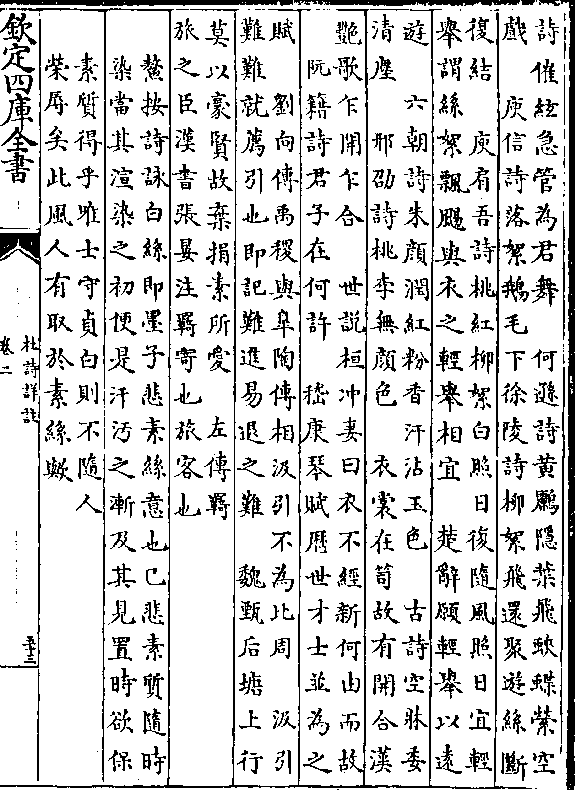 詩催絃急管為君舞　何遜詩黃鸝隱葉飛蛺蝶縈空
戲　庾信詩落絮鵝毛下徐陵詩柳絮飛還聚遊絲斷
復結　庾肩吾詩桃紅柳絮白照日復隨風照日宜輕
舉謂絲絮飄颺與衣之輕舉相宜　楚辭願輕舉以遠
遊　六朝詩朱顔潤紅粉香汗沾玉色　古詩空牀委
清塵　邢邵詩桃李無顔色　衣裳在笥故有開合漢
艷歌乍開乍合　世説桓冲妻曰衣不經新何由而故
阮籍詩君子在何許　嵇康琴賦歷世才士並為之
賦　劉向傳禹稷與臯陶傳相汲引不為比周　汲引
難難就薦引也即記難進易退之難　魏甄后塘上行
莫以豪賢故棄捐素所愛　左傳羇
旅之臣漢書張晏注羇寄也旅客也
鼇按詩詠白絲即墨子悲素絲意也已悲素質隨時
染當其渲染之初便是汗汚之漸及其見置時欲保
素質得乎唯士守貞白則不隨人
榮辱矣此風人有取於素絲歟
欽定四庫全書
杜詩詳註
卷二
五十三